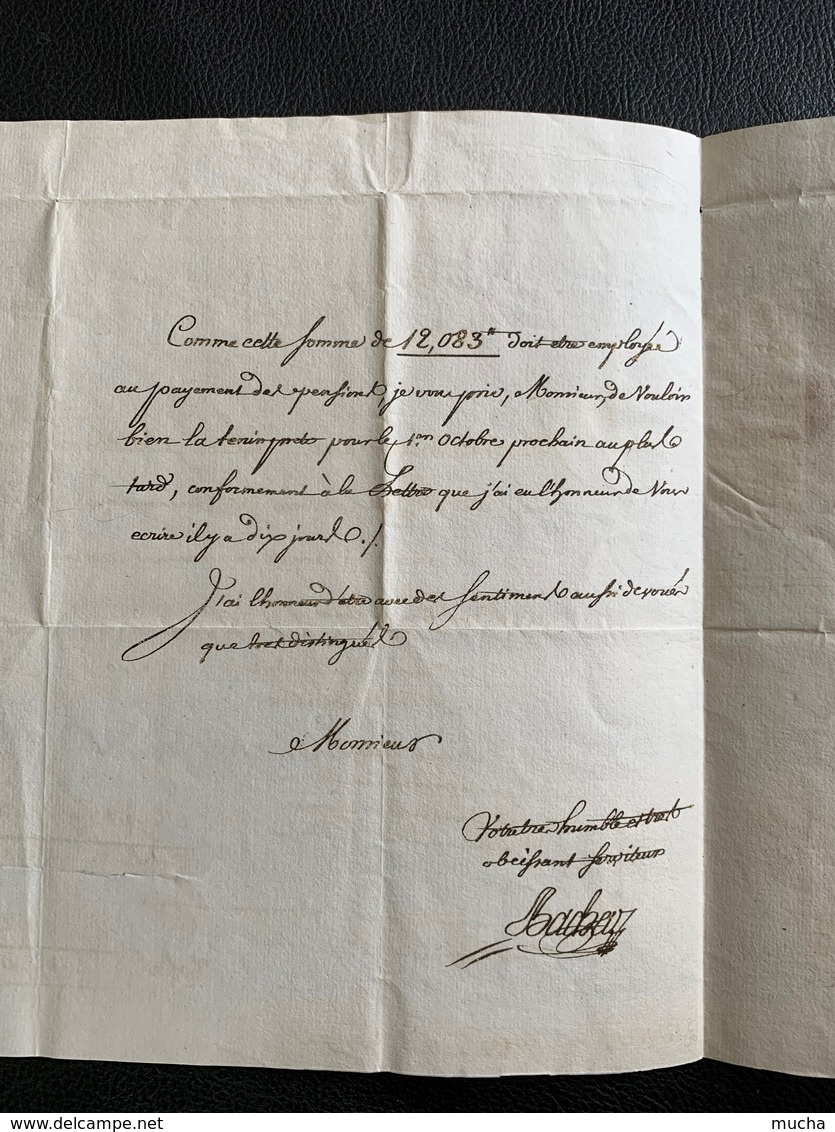 Comme cette somme de 12,083# doit etre employée
au payement des pensions, je vous prie, Monsieur, de Vouloir
bien la tenir prete pour le 1.er Octobre prochain au plus
tard, conformement à la Lettre que j'ai eu l'honneur de Vous
ecrire il y a dix jours ./.
J'ai l'honneur d'etre avec des sentimens aussi devoués
que tres distingués
Monsieur
Votre tres humble et tres
obéissant serviteur
Bacher
www.delcampe.net
mucha